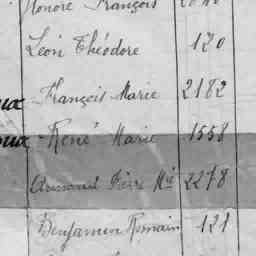 Honoré François
Léon Théodore 120
François Marie 2182
René Marie 1558
Armand Pierre Mie 2278
Benjamin Romain 121